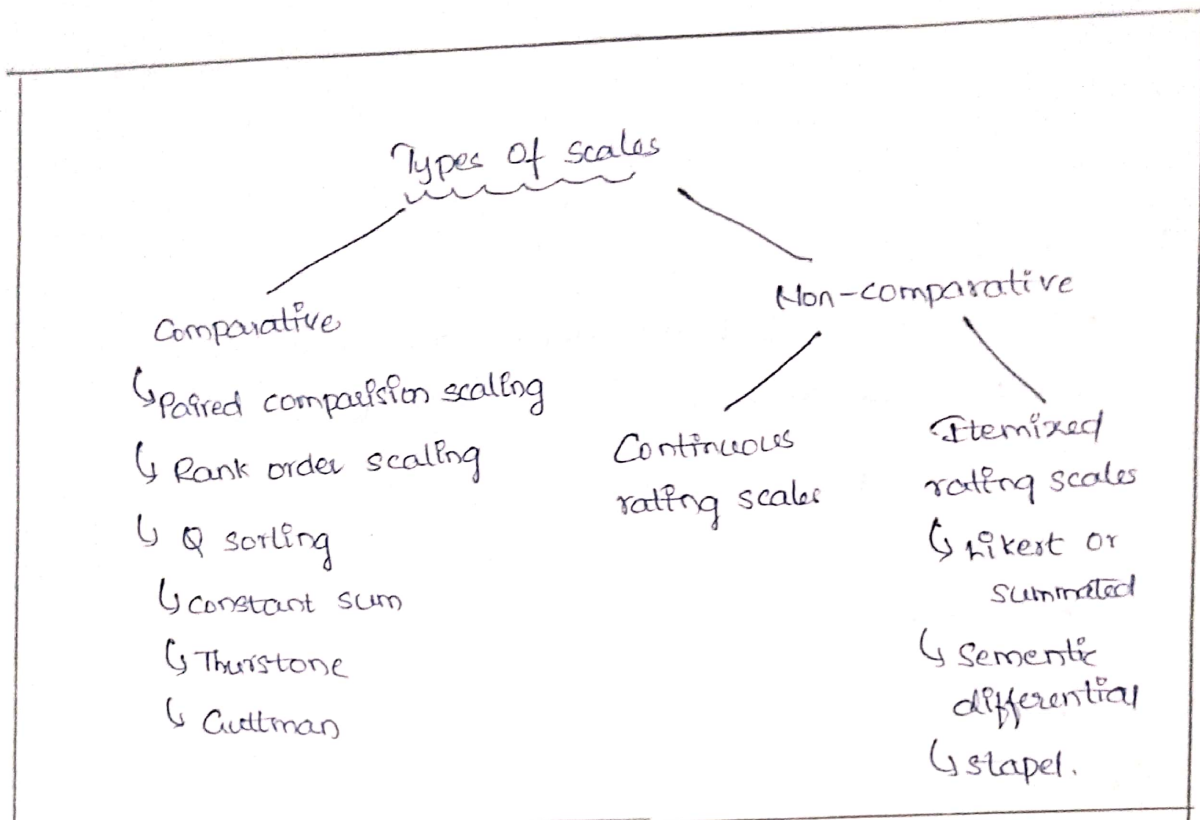 Types of scales
Comparative
↳ Paired comparision scaling
↳ Rank order scaling
↳ Q sorting
↳ constant sum
↳ Thurstone
↳ Guttman
Non-comparative
Continuous
rating scales
Itemixed
rating scales
↳ Likert or
summated
↳ Sementic
differential
↳ stapel.